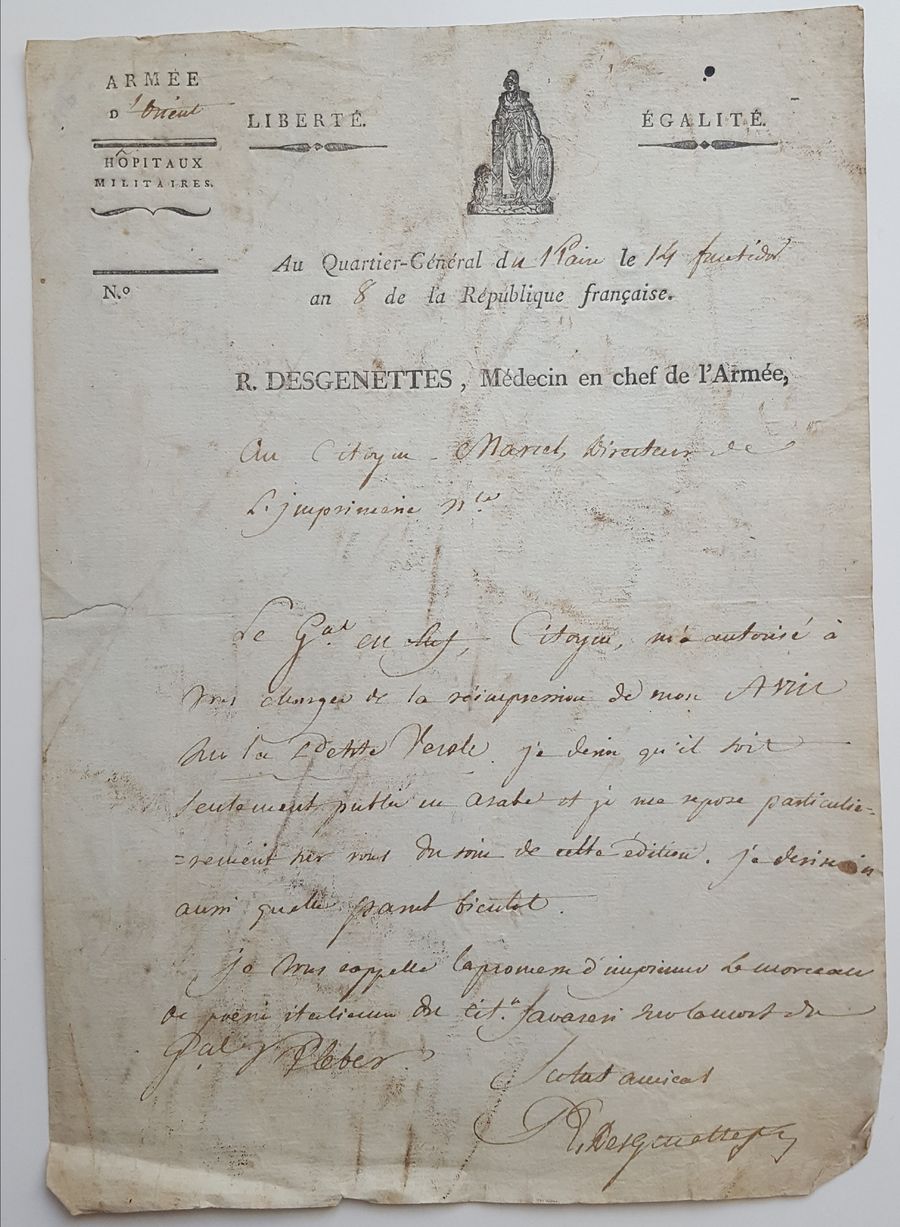 ARMÉE
D'Orient
HÔPITAUX
MILITAIRES.
N.º
LIBERTÉ.
ÉGALITÉ.
Au Quartier-Général du Kaire le 14 fructidor
an 8 de la République française.
R. DESGENETTES, Médecin en chef de l'Armée,
Au Citoyen Marcel, Directeur de
L'imprimerie n.le
Le G.al en chef, Citoyen, m'a autorisé à
vous charger de la réimpression de mon Avis
sur la Petite Verole. je desire qu'il soit
seulement publié en arabe et je me repose particulie=
=rement sur vous du soin de cette édition. je desire
aussi quelle parut bientot.
Je vous rappelle la promesse d'imprimer le morceau
de poesie italienne du cit.n sur la mort du
G.al Kleber.
Salut amical
R. Desgenettes